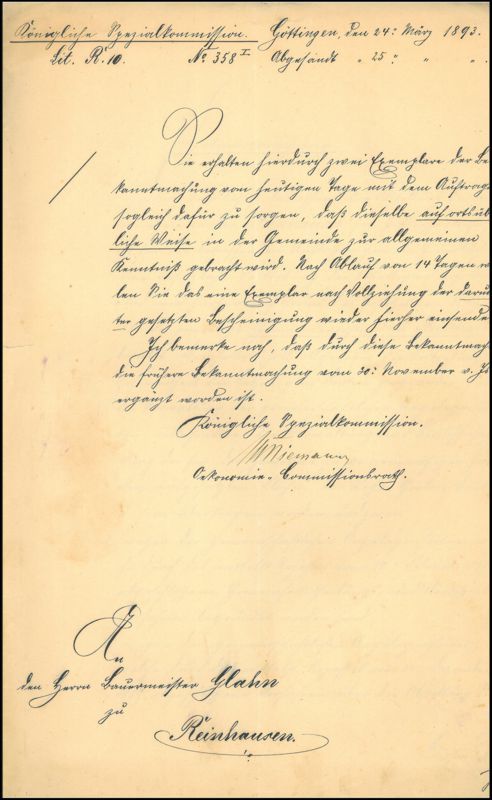 Königliche Spezialkommission. Göttingen, den 24. März 1893.
Lit. R. 10. No 358 I Abgesandt " 25 " " " .
Sie erhalten hierdurch zwei Exemplare der Be
kanntmachung vom heutigen Tage mit dem Auftrage
sogleich dafür zu sorgen, daß dieselbe auf ortsüb
liche Weise in der Gemeinde zur allgemeinen
Kenntniß gebracht wird. Nach Ablauf von 14 Tagen w
len Sie das eine Exemplar nach Vollziehung der darun
ter gesetzten Bescheinigung wieder hierher einsende
Ich bemerke noch, daß durch diese Bekanntmach
die frühere Bekanntmachung vom 30. November v. Js
ergänzt worden ist.
Königliche Spezialkommission.
Niemann
Oekonomie-Commissionsrath.
An
den Herrn Bauermeister Glahn
zu
Reinhausen.